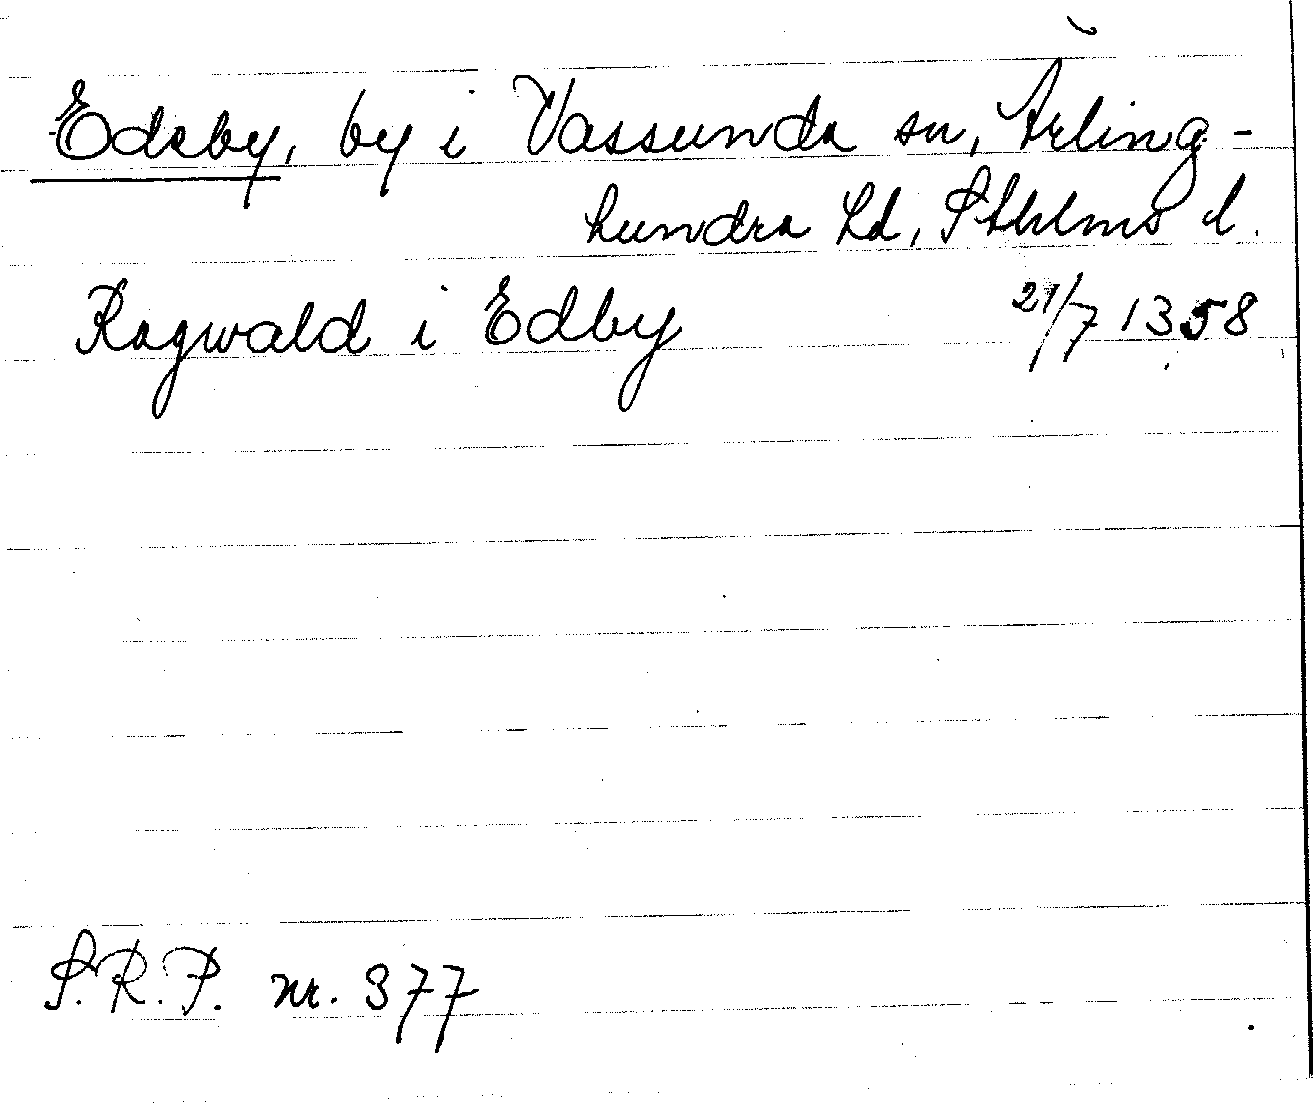 Edeby, by i Vassunda sn, Ärling-
hundra hd, Sthlms l.
Ragwald i Edby 21/7 1358
S.R.P. nr. 377